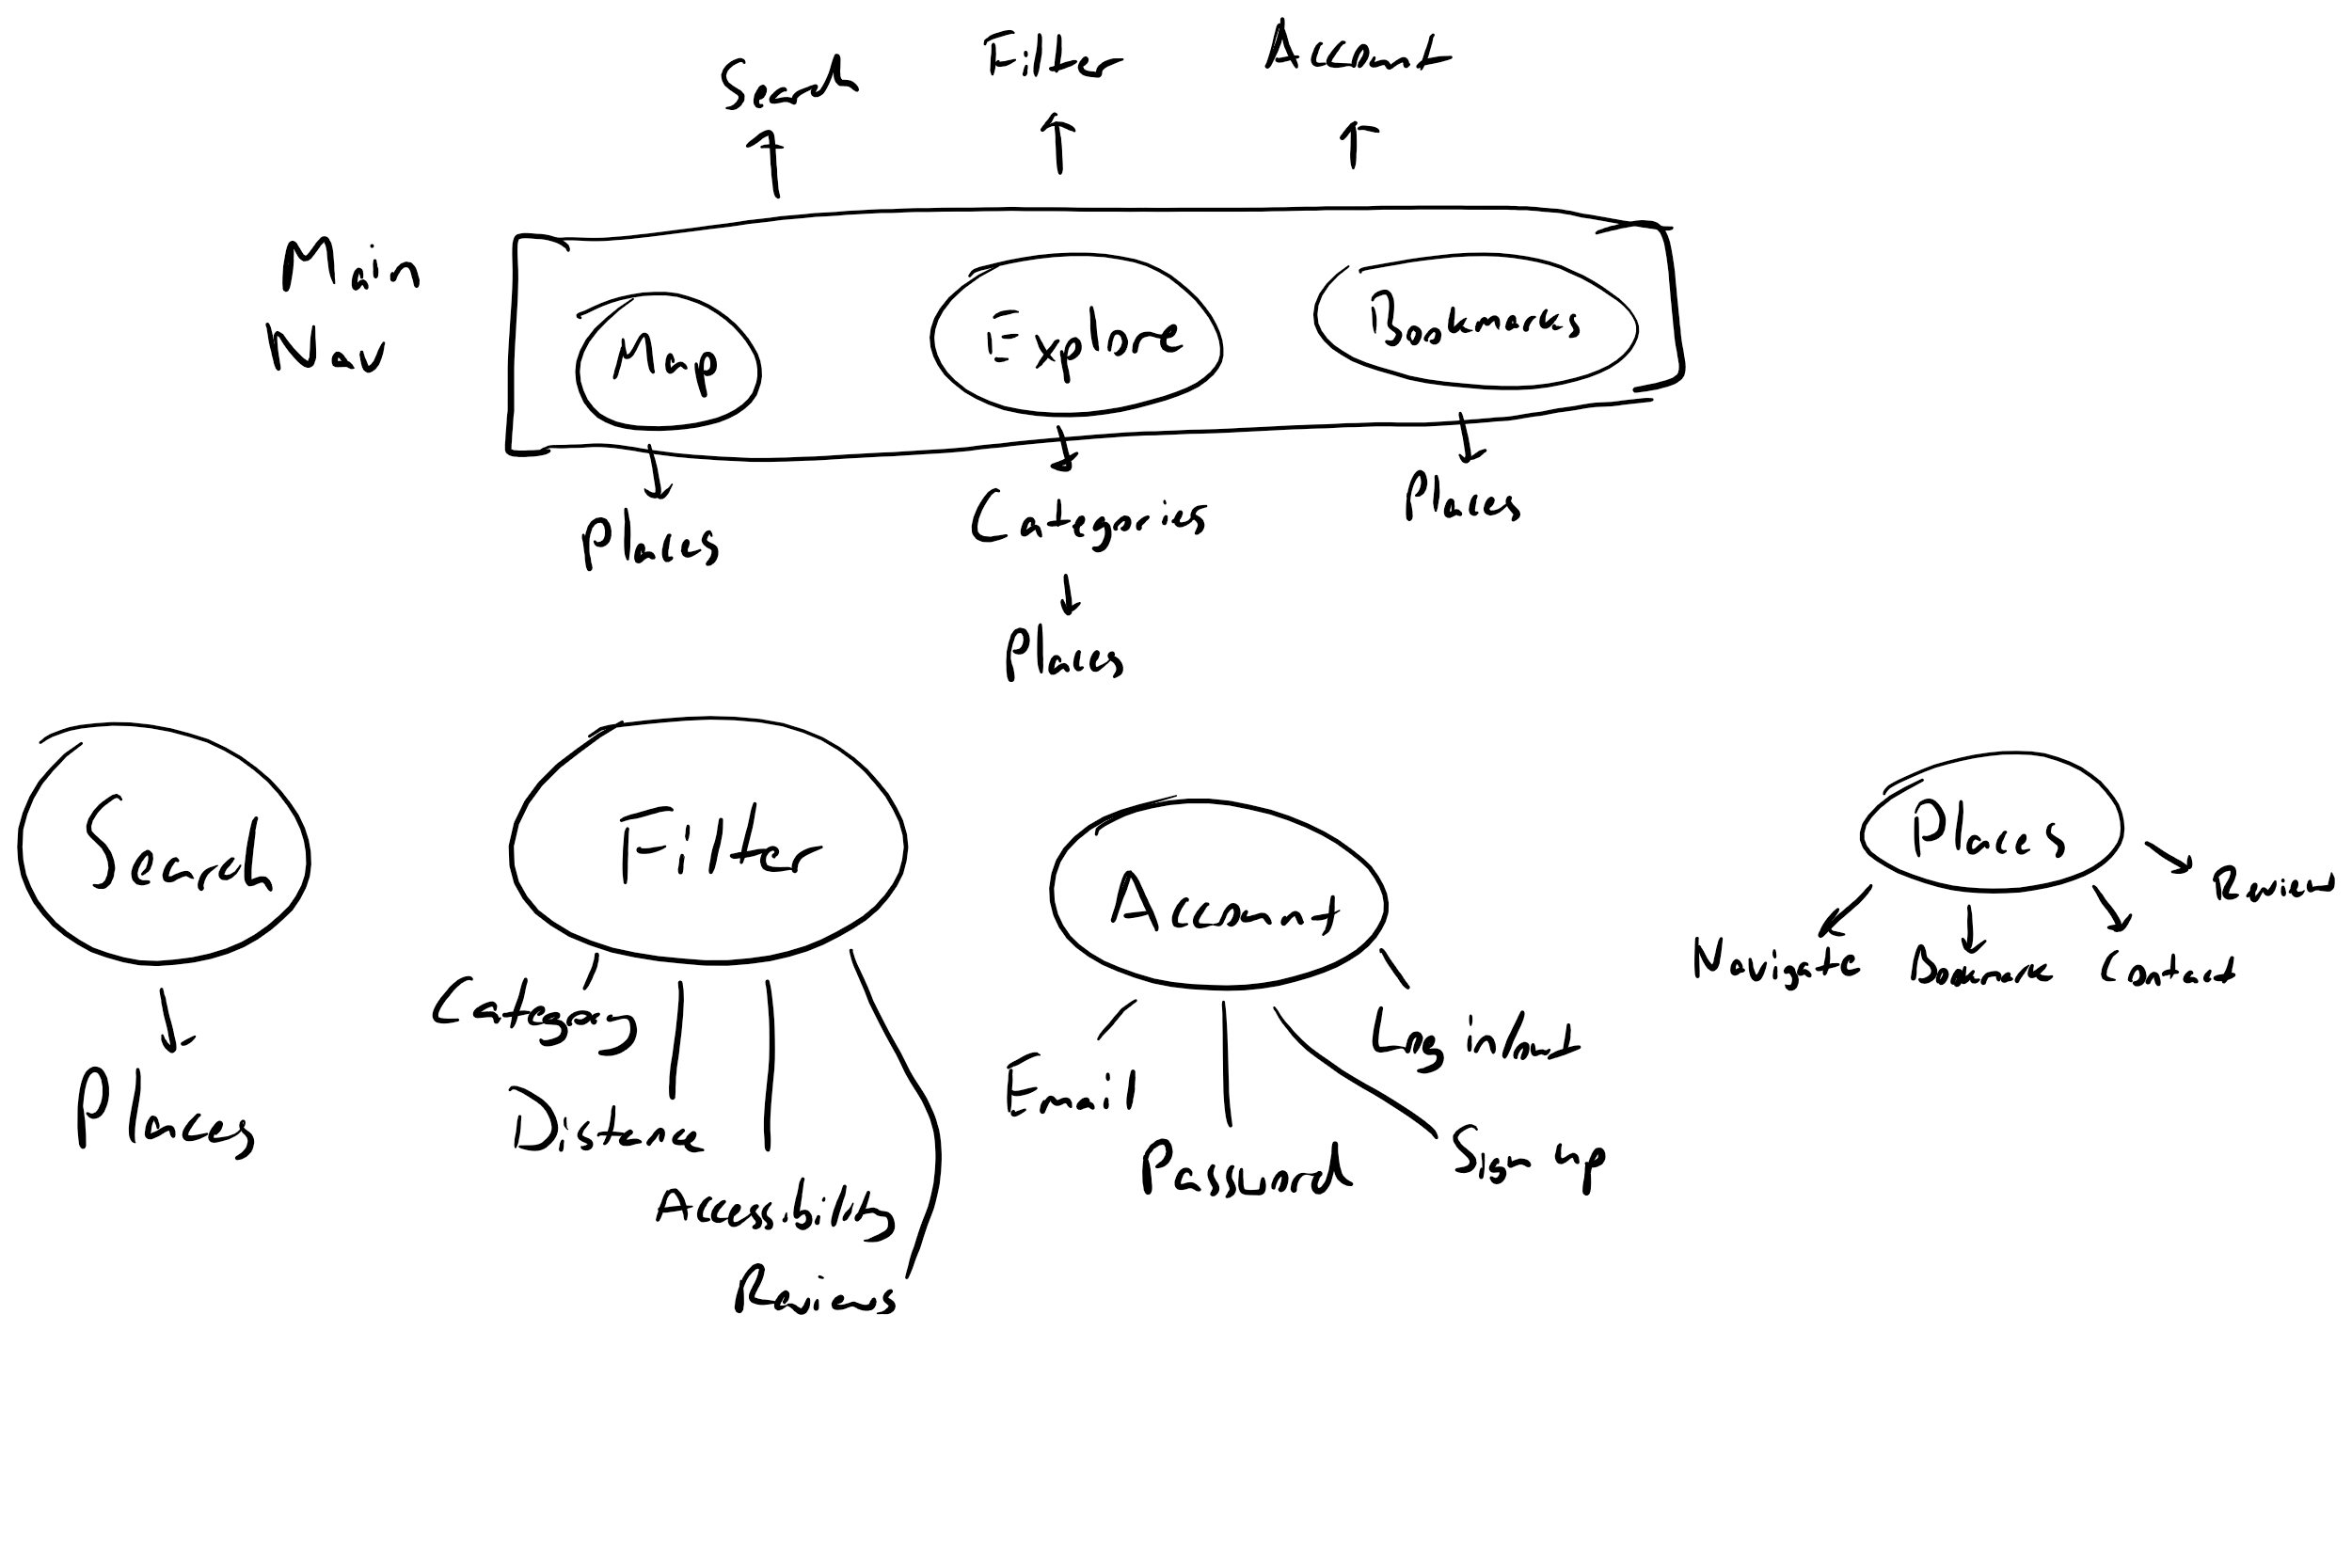 Search
Filter
Account
Main
Nav
Map
Explore
Bookmarks
Places
Categories
Places
Places
Search
Places
Filter
Category
Distance
Accessibility
Reviews
Account
Email
Password
Sign up
Log in/out
Places
Navigate
Bookmark
Contact
Review